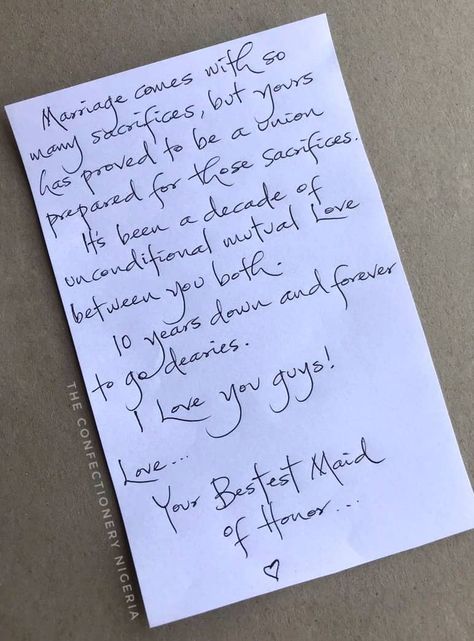 Marriage comes with so
many sacrifices, but yours
has proved to be a union
prepared for those sacrifices.
It's been a decade of
unconditional mutual Love
between you both.
10 years down and forever
to go dearies.
I Love you guys!
Love...
Your Bestest Maid
of Honor...
THE CONFECTIONERY NIGERIA